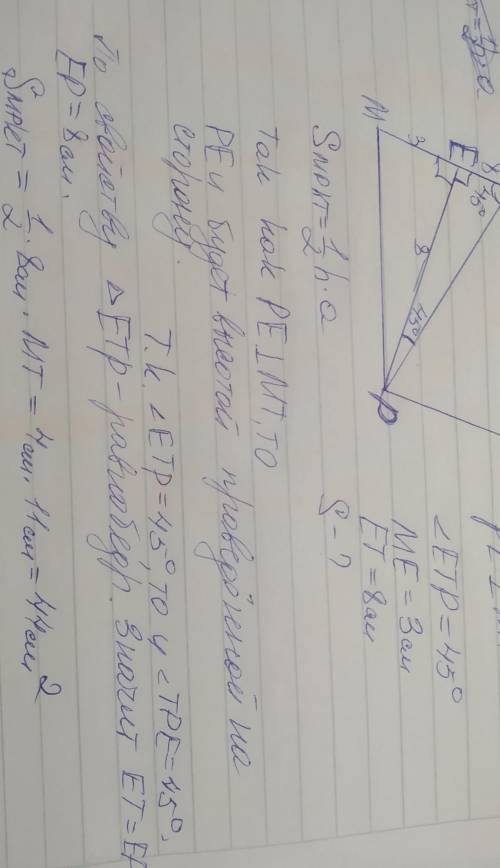 ∠ETP=45°
ME=3см
ET=8см
S-?
M
3
E
8
45°
8
45°
P
Sмркт=½h·a
Так как PE⊥MT, то
PE и будет высотой проведённой на
сторону.
Т.к. ∠ETP=45°, то и ∠TPE=45°,
По свойству △ETP-равнобедр. Значит ET=EP
EP=8см.
Sмркт = 1/2 · 8см · MT = 4см · 11см = 44см²